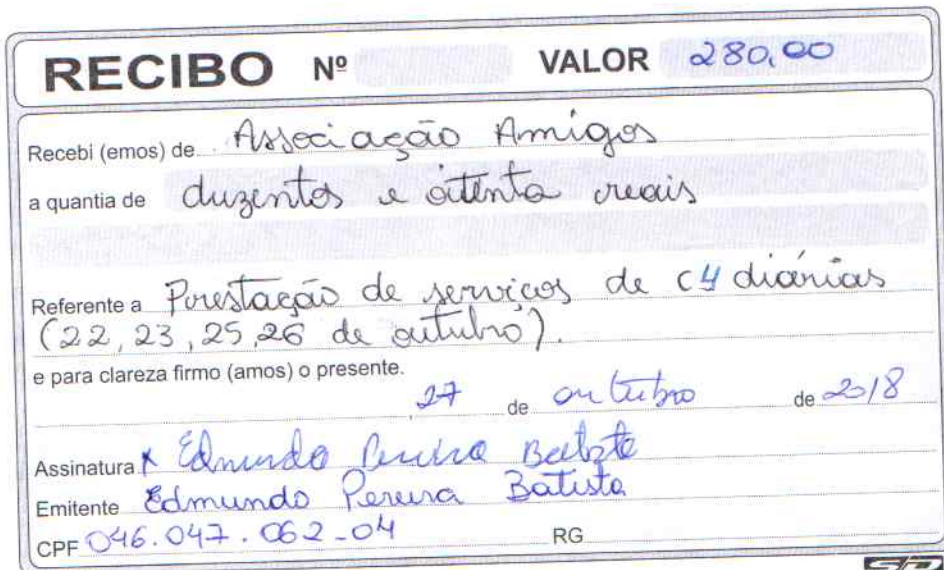 RECIBO Nº VALOR 280,00
Recebi (emos) de Associação Amigos
a quantia de duzentos e oitenta reais
Referente a Prestação de serviços de 04 diárias
(22, 23, 25, 26 de outubro).
e para clareza firmo (amos) o presente.
, 27 de outubro de 2018
Assinatura x Edmundo Pereira Batista
Emitente Edmundo Pereira Batista
CPF 046.047.062-04 RG
SD